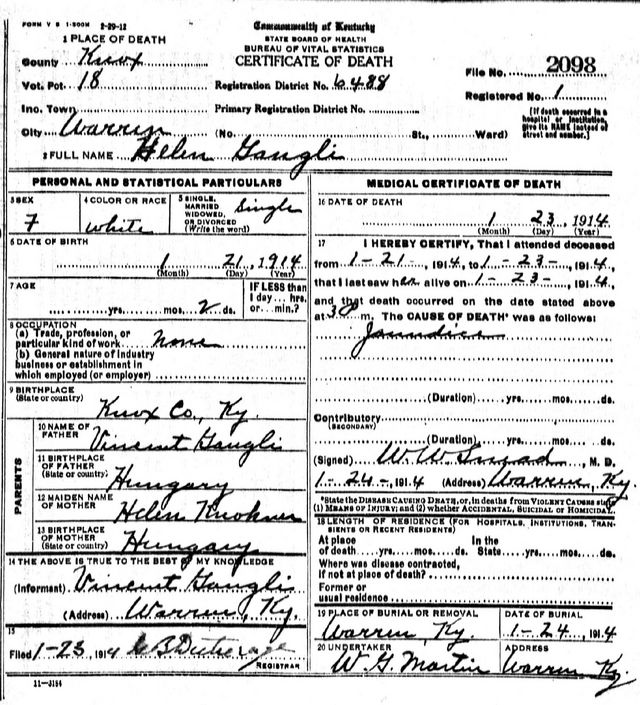 FORM V S 1-500M 2-29-12
Commonwealth of Kentucky
STATE BOARD OF HEALTH
BUREAU OF VITAL STATISTICS
CERTIFICATE OF DEATH
1 PLACE OF DEATH
County Knox
Vot. Pct. 18
Registration District No. 6488
File No. 2098
Inc. Town
Primary Registration District No.
Registered No. 1
City Warren (No. St., Ward)
[If death occurred in a hospital or institution, give its NAME instead of street and number.]
2 FULL NAME Helen Gangli
PERSONAL AND STATISTICAL PARTICULARS
3 SEX
F
4 COLOR OR RACE
White
5 SINGLE, MARRIED WIDOWED, OR DIVORCED (Write the word)
Single
6 DATE OF BIRTH
1 21, 1914
(Month) (Day) (Year)
7 AGE
yrs. mos. 2 ds.
IF LESS than 1 day... hrs. or... min.?
8 OCCUPATION
(a) Trade, profession, or particular kind of work None
(b) General nature of industry business or establishment in which employed (or employer)
9 BIRTHPLACE
(State or country) Knox Co., Ky.
PARENTS
10 NAME OF FATHER Vincent Gangli
11 BIRTHPLACE OF FATHER (State or country) Hungary
12 MAIDEN NAME OF MOTHER Helen
13 BIRTHPLACE OF MOTHER (State or country) Hungary
14 THE ABOVE IS TRUE TO THE BEST OF MY KNOWLEDGE
(Informant) Vincent Gangli
(Address) Warren, Ky.
15
Filed 1-23, 1914
REGISTRAR
11-3184
MEDICAL CERTIFICATE OF DEATH
16 DATE OF DEATH
1 23, 1914
(Month) (Day) (Year)
17 I HEREBY CERTIFY, That I attended deceased
from 1-21-, 1914, to 1-23-, 1914,
that I last saw her alive on 1-23-, 1914,
and that death occurred on the date stated above
at m. The CAUSE OF DEATH* was as follows:
Jaundice
(Duration) yrs. mos. ds.
Contributory
(SECONDARY)
(Duration) yrs. mos. ds.
(Signed) W. W. , M. D.
1-24-, 1914 (Address) Warren, Ky.
*State the DISEASE CAUSING DEATH, or, in deaths from VIOLENT CAUSES state
(1) MEANS OF INJURY; and (2) whether ACCIDENTAL, SUICIDAL or HOMICIDAL.
18 LENGTH OF RESIDENCE (FOR HOSPITALS, INSTITUTIONS, TRANSIENTS OR RECENT RESIDENTS)
At place of death yrs. mos. ds. In the State yrs. mos. ds.
Where was disease contracted,
if not at place of death?
Former or usual residence
19 PLACE OF BURIAL OR REMOVAL
Warren, Ky
DATE OF BURIAL
1-24, 1914
20 UNDERTAKER
W. G. Martin
ADDRESS
Warren, Ky.